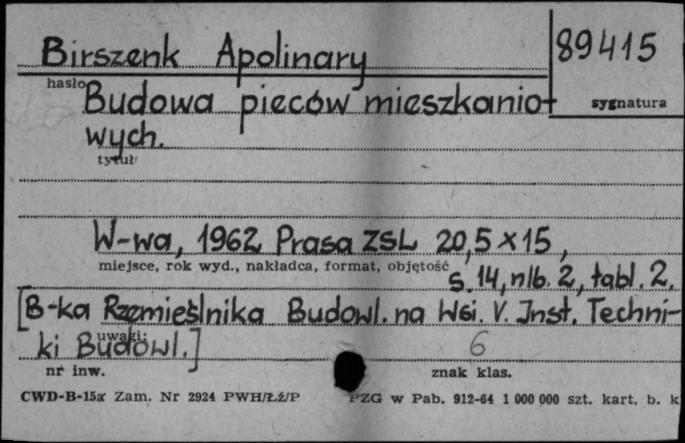 Birszenk Apolinary
89415
hasło
sygnatura
Budowa pieców mieszkanio-
wych.
tytuł
W-wa, 1962 Prasa ZSL 20,5 x 15,
miejsce, rok wyd., nakładca, format, objętość
s. 14, nlb. 2, tabl. 2.
[B-ka Rzemieślnika Budowl. na Wsi. V. Inst. Techni-
uwagi:
ki Budowl.]
6
nr inw.
znak klas.
CWD-B-15a Zam. Nr 2924 PWH/Łż/P
PZG w Pab. 912-64 1 000 000 szt. kart. b. k